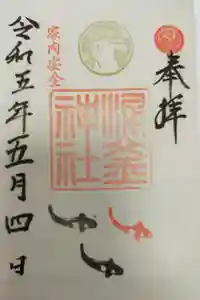 奉拝
神社
家内安全
令和五年五月四日